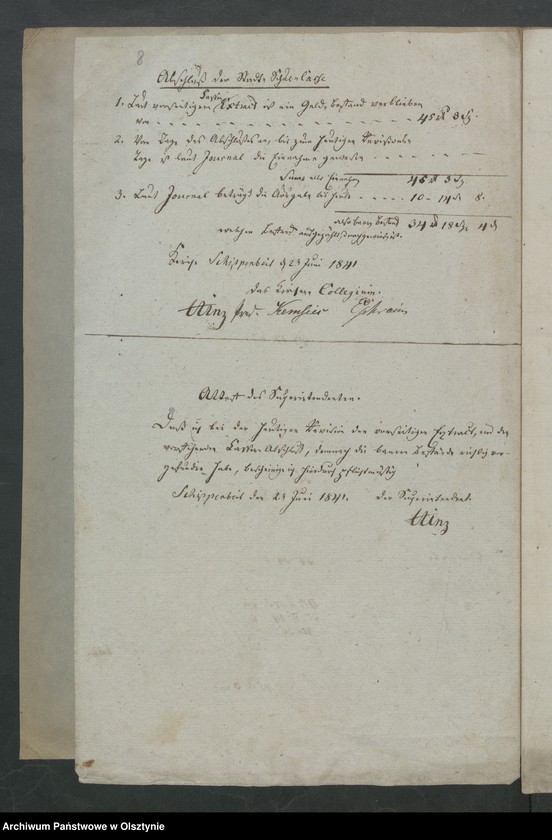 8
Abschluß der Stadt-Schulcasse
1. Laut vorseitigem Cassen Extract ist ein Geldbestand verblieben
von - - - - - 45 rt 3 sg.
2. Vom Tage des Abschlusses an, bis zum heutigen Revisions
Tage ist laut Journal die Einnahme gewesen - - - -
Summa aller Einnahmen 45 rt 3 sg
3. Laut Journal beträgt die Ausgabe bis heute - - - - 10 - 14 - 8.
also baarer Bestand 34 rt 18 sg 4
welcher Bestand auch nachgewiesen ist.
Schippenbeil d 23 Juni 1841
Das Kirchen Collegium.
Hinz
Attest des Superintendenten.
Daß ich bei der heutigen Revision den vorseitigen Extract, und den
vorstehenden Cassen-Abschluß, demnach die baaren Bestände richtig vor-
gefunden habe, bescheinige ich hiedurch pflichtmäßig
Schippenbeil den 23 Juni 1841. Der Superintendent.
Hinz
Archiwum Państwowe w Olsztynie